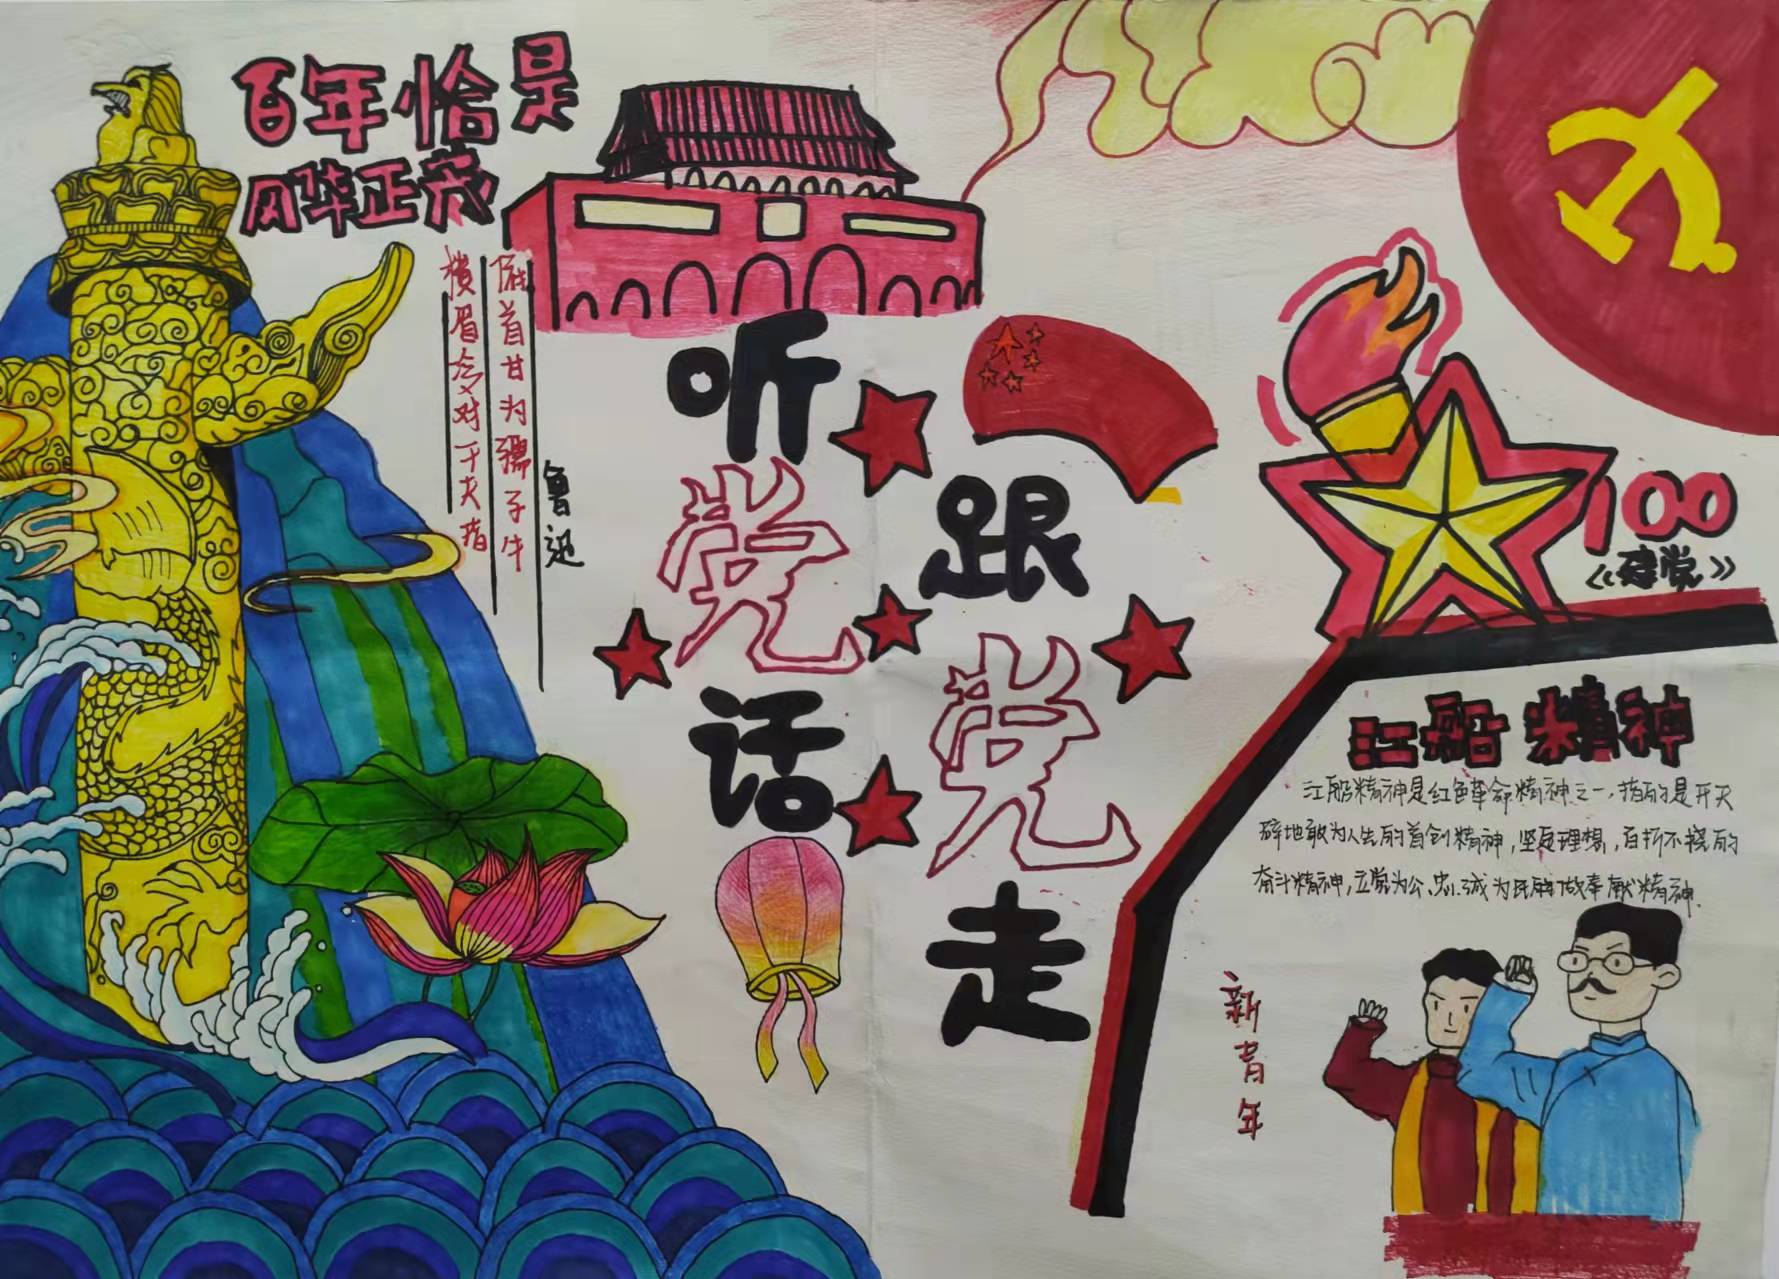 百年恰是
风华正茂
横眉冷对千夫指
俯首甘为孺子牛
鲁迅
听党话
跟党走
100
《建党》
江船精神
江船精神是红色革命精神之一，指的是开天
辟地敢为人先的首创精神，坚定理想，百折不挠的
奋斗精神，立党为公、忠诚为民的奉献精神.
新青年